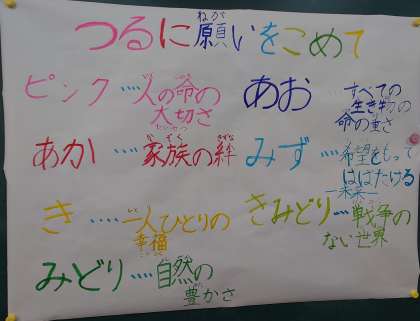 つるに願いをこめて
ピンク・・・・人の命の
大切さ
あか・・・・家族の絆
き・・・・一人ひとりの
幸福
みどり・・・・自然の
豊かさ
あお・・・・すべての
生き物の
命の重さ
みず・・・・希望をもって
はばたける
―未来―
きみどり・・・・戦争の
ない世界